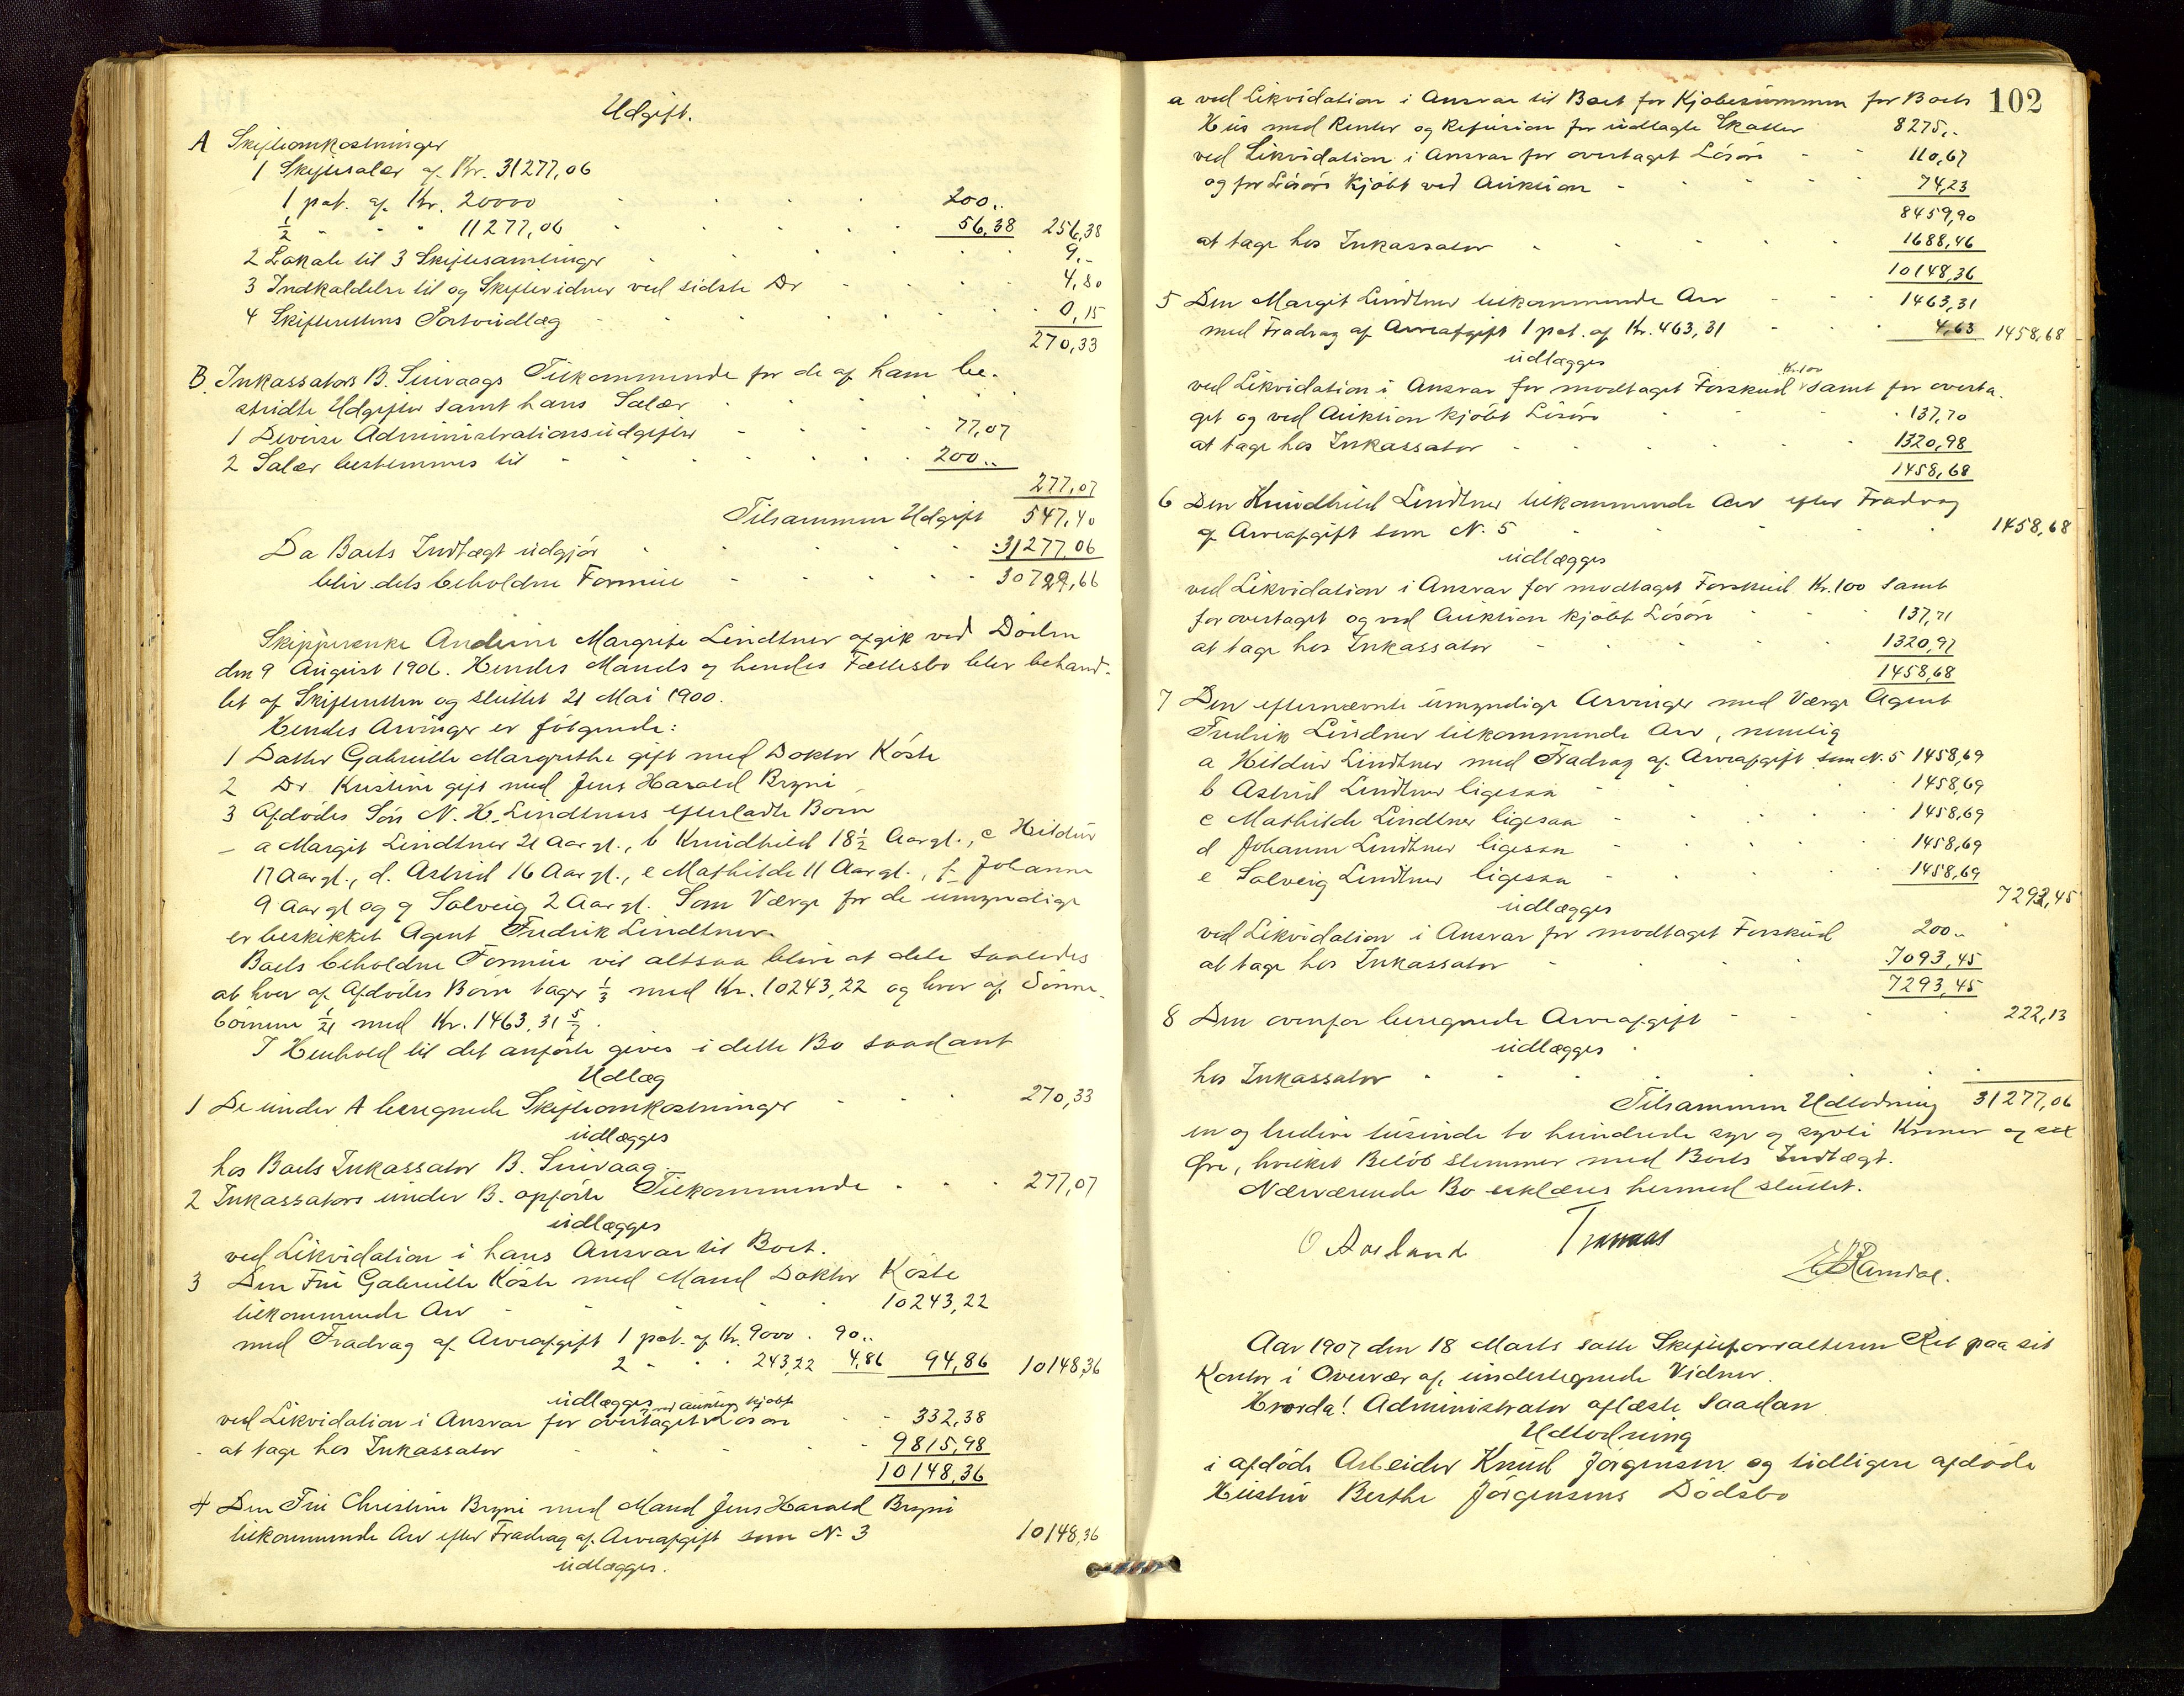 Udgift.
A Skifteomkostninger
1 Skiftesalær af Kr. 31277,06
1 pct. af Kr. 20000 200..
½ " " " 11277,06 56,38 256,38
2 Lokale til 3 Skiftesamlinger 9,-
3 Indkaldelse til og Skiftevidner ved sidste Do 4,80
4 Skifterettens Portoudlæg 0,15
270,33
B. Inkassators B. Sirivaags Tilkommende for de af ham be-
stridte Udgifter samt hans Salær
1 Diverse Administrationsudgifter 77,07
2 Salær bestemmes til 200..
277,07
Tilsammen Udgift 547,40
Da Boets Indtægt udgjør 31277,06
bliver dets beholdne Formue 30729,66
Skipperenke Andrine Margrete Lindtner afgik ved Døden
den 9 August 1906. Hendes Mands og hendes Fællesbo blev behand-
let af Skifteretten og sluttet 21 Mai 1900.
Hendes Arvinger er følgende:
1 Datter Gabrielle Margrethe gift med Doktor Köste
2 Do Kristine gift med Jens Harald Bryni
3 Afdødes Søn N. H. Lindtners efterladte Børn
a Margit Lindtner 21 Aar gl., b Knudhild 18½ Aar gl., c Hildur
17 Aar gl., d. Astrid 16 Aar gl., e Mathilde 11 Aar gl., f Johanne
9 Aar gl og g Solveig 2 Aar gl. Som Værge for de umyndige
er beskikket Agent Fredrik Lindtner.
Boets beholdne Formue vil altsaa blive at dele saaledes
at hver af Afdødes Børn tager ⅓ med Kr. 10243,22 og hver af Sønne-
børnene 1/21 med Kr. 1463,31 5/7.
I Henhold til det anførte gives i dette Bo saadant
Udlæg
1 De under A beregnede Skifteomkostninger 270,33
udlægges
hos Boets Inkassator B. Sirivaag.
2 Inkassators under B. opførte Tilkommende 277,07
udlægges
ved Likvidation i hans Ansvar til Boet.
3 Den Fru Gabrielle Köste med Mand Doktor Köste
tilkommende Arv 10243,22
med Fradrag af Arveafgift 1 pct. af Kr. 9000. 90..
2 " " 243,22 4,86 94,86 10148,36
udlægges
ved Auktion kjøbt
ved Likvidation i Ansvar for overtaget v Løsøre 332,38
at tage hos Inkassator 9815,98
10148,36
4 Den Fru Christine Bryni med Mand Jens Harald Bryni
tilkommende Arv efter Fradrag af Arveafgift som N. 3 10148,36
udlægges.
102
a ved Likvidation i Ansvar til Boet for Kjøbesummen for Boets
Hus med Renter og Refusion for udlagte Skatter 8275,-
ved Likvidation i Ansvar for overtaget Løsøre 110,67
og for Løsøre kjøbt ved Auktion 74,23
8459,90
at tage hos Inkassator 1688,46
10148,36
5 Den Margit Lindtner tilkommende Arv 1463,31
med Fradrag af Arveafgift 1 pct. af Kr. 463,31 4,63 1458,68
udlægges
Kr. 100
ved Likvidation i Ansvar for modtaget Forskud v samt for overta-
get og ved Auktion kjøbt Løsøre 137,70
at tage hos Inkassator 1320,98
1458,68
6 Den Knudhild Lindtner tilkommende Arv efter Fradrag
af Arveafgift som N. 5 1458,68
udlægges
ved Likvidation i Ansvar for modtaget Forskud Kr. 100 samt
for overtaget og ved Auktion kjøbt Løsøre 137,71
at tage hos Inkassator 1320,97
1458,68
7 Den efternævnte umyndige Arvinger med Værge Agent
Fredrik Lindner tilkommende Arv, nemlig
a Hildur Lindtner med Fradrag af Arveafgift som N. 5 1458,69
b Astrid Lindtner ligesaa 1458,69
c Mathilde Lindtner ligesaa 1458,69
d Johanne Lindtner ligesaa 1458,69
e Solveig Lindtner ligesaa 1458,69
7293,45
udlægges
ved Likvidation i Ansvar for modtaget Forskud 200..
at tage hos Inkassator 7093,45
7293,45
8 Den ovenfor beregnede Arveafgift 222,13
udlægges
hos Inkassator
Tilsammen Udlodning 31277,06
en og tredive tusinde to hundrede syv og sytti Kroner og sex
Øre, hvilket Beløb stemmer med Boets Indtægt.
Nærværende Bo erklæres hermed sluttet.
O Aasland
Aar 1907 den 18 Marts satte Skifteforvalteren Ret paa sit
Kontor i Overvær af undertegnede Vidner.
Hvorda! Administrator aflæste saadan
Udlodning
i afdøde Arbeider Knud Jørgensen og tidligere afdøde
Hustru Berthe Jørgensens Dødsbo